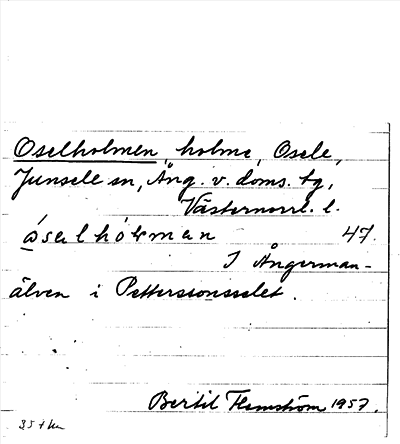 Oselholmen, holme, Osele,
Junsele sn, Ång. v. doms. tg,
Västernorrl. l.
åsəlhólmən 47.
I Ångerman-
älven i Petterssonsselet.
Bertil Flemström 1957.